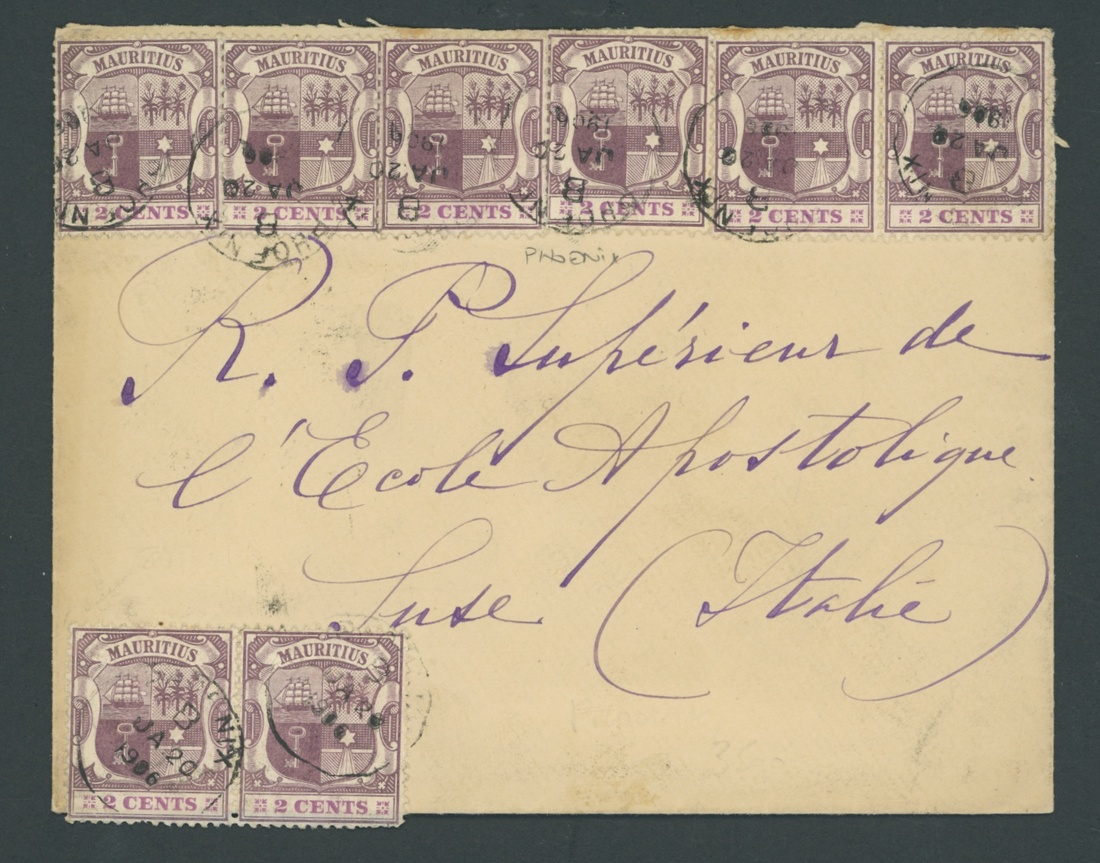 MAURITIUS MAURITIUS MAURITIUS MAURITIUS MAURITIUS MAURITIUS
B JA 20 1906
2 CENTS 2 CENTS 2 CENTS 2 CENTS 2 CENTS 2 CENTS
PHOENIX
R. P. Supérieur de
l'Ecole Apostolique
Suse (Italie)
MAURITIUS MAURITIUS
B NIX
JA 20
1906
2 CENTS 2 CENTS